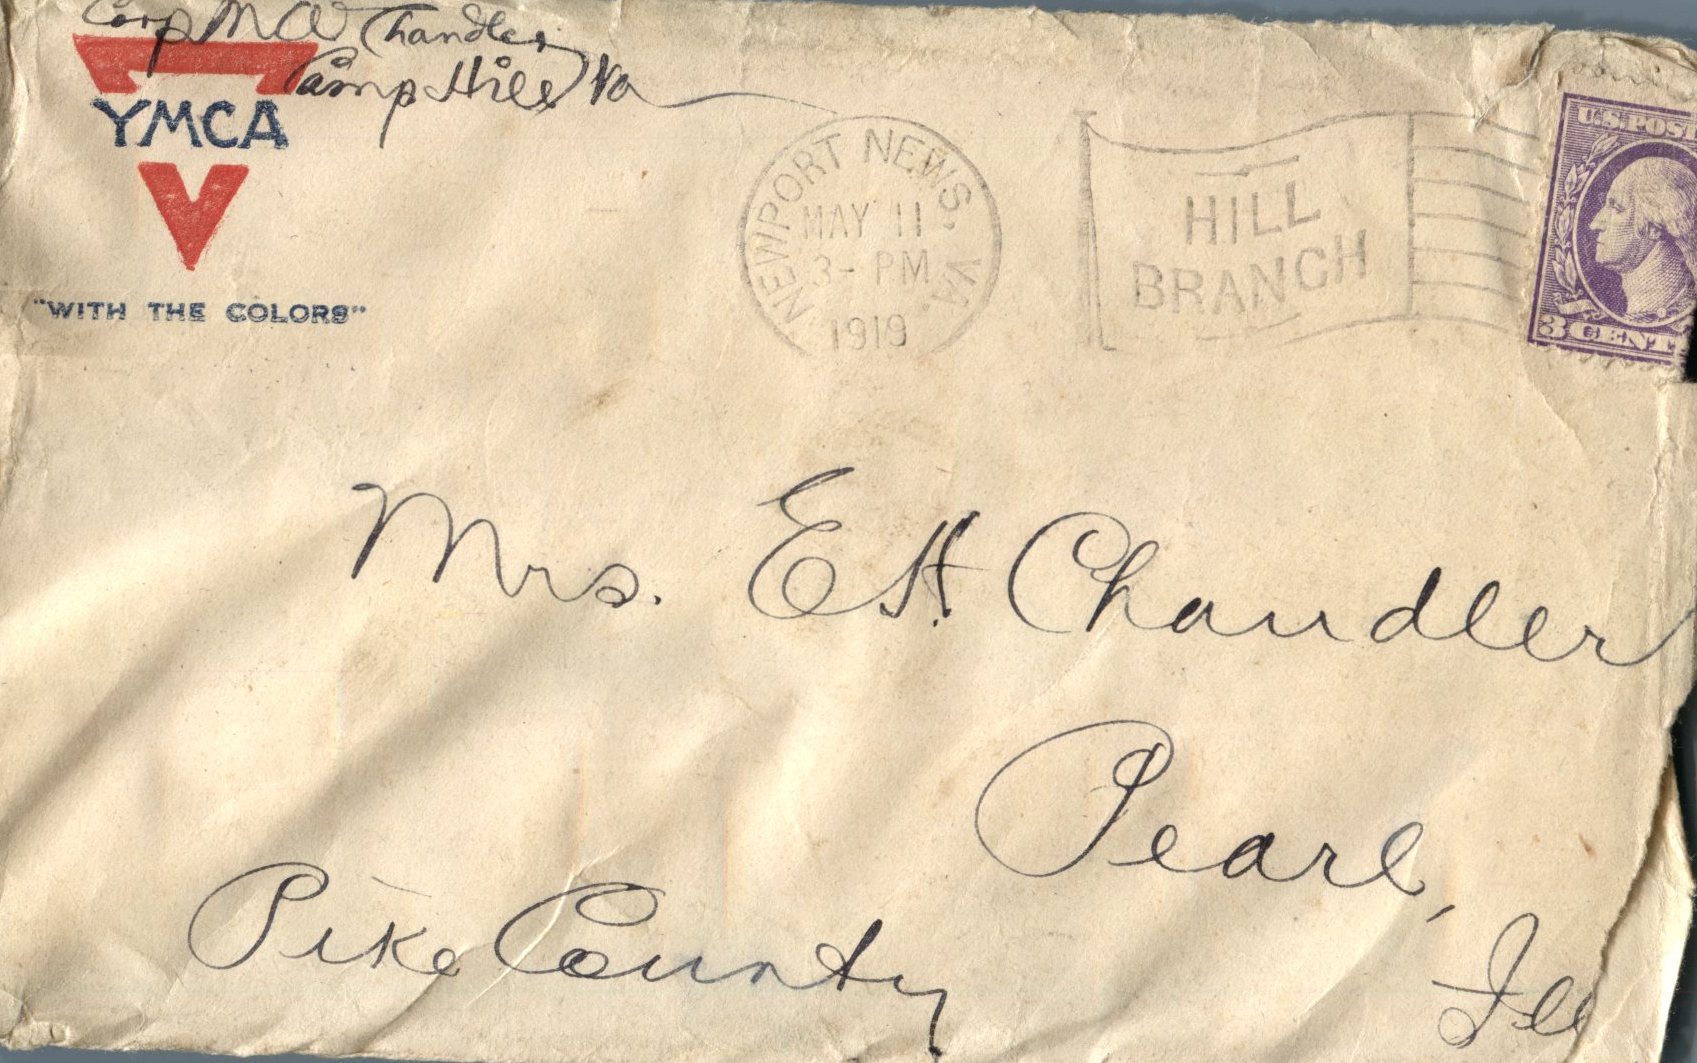 Corp M W Chandler
Camp Hill Va
YMCA
"WITH THE COLORS"
NEWPORT NEWS, VA.
MAY 11
3- PM
1919
HILL
BRANCH
U.S. POST
3 CENT
Mrs. E H. Chandler
Pearl,
Pike County
Ill